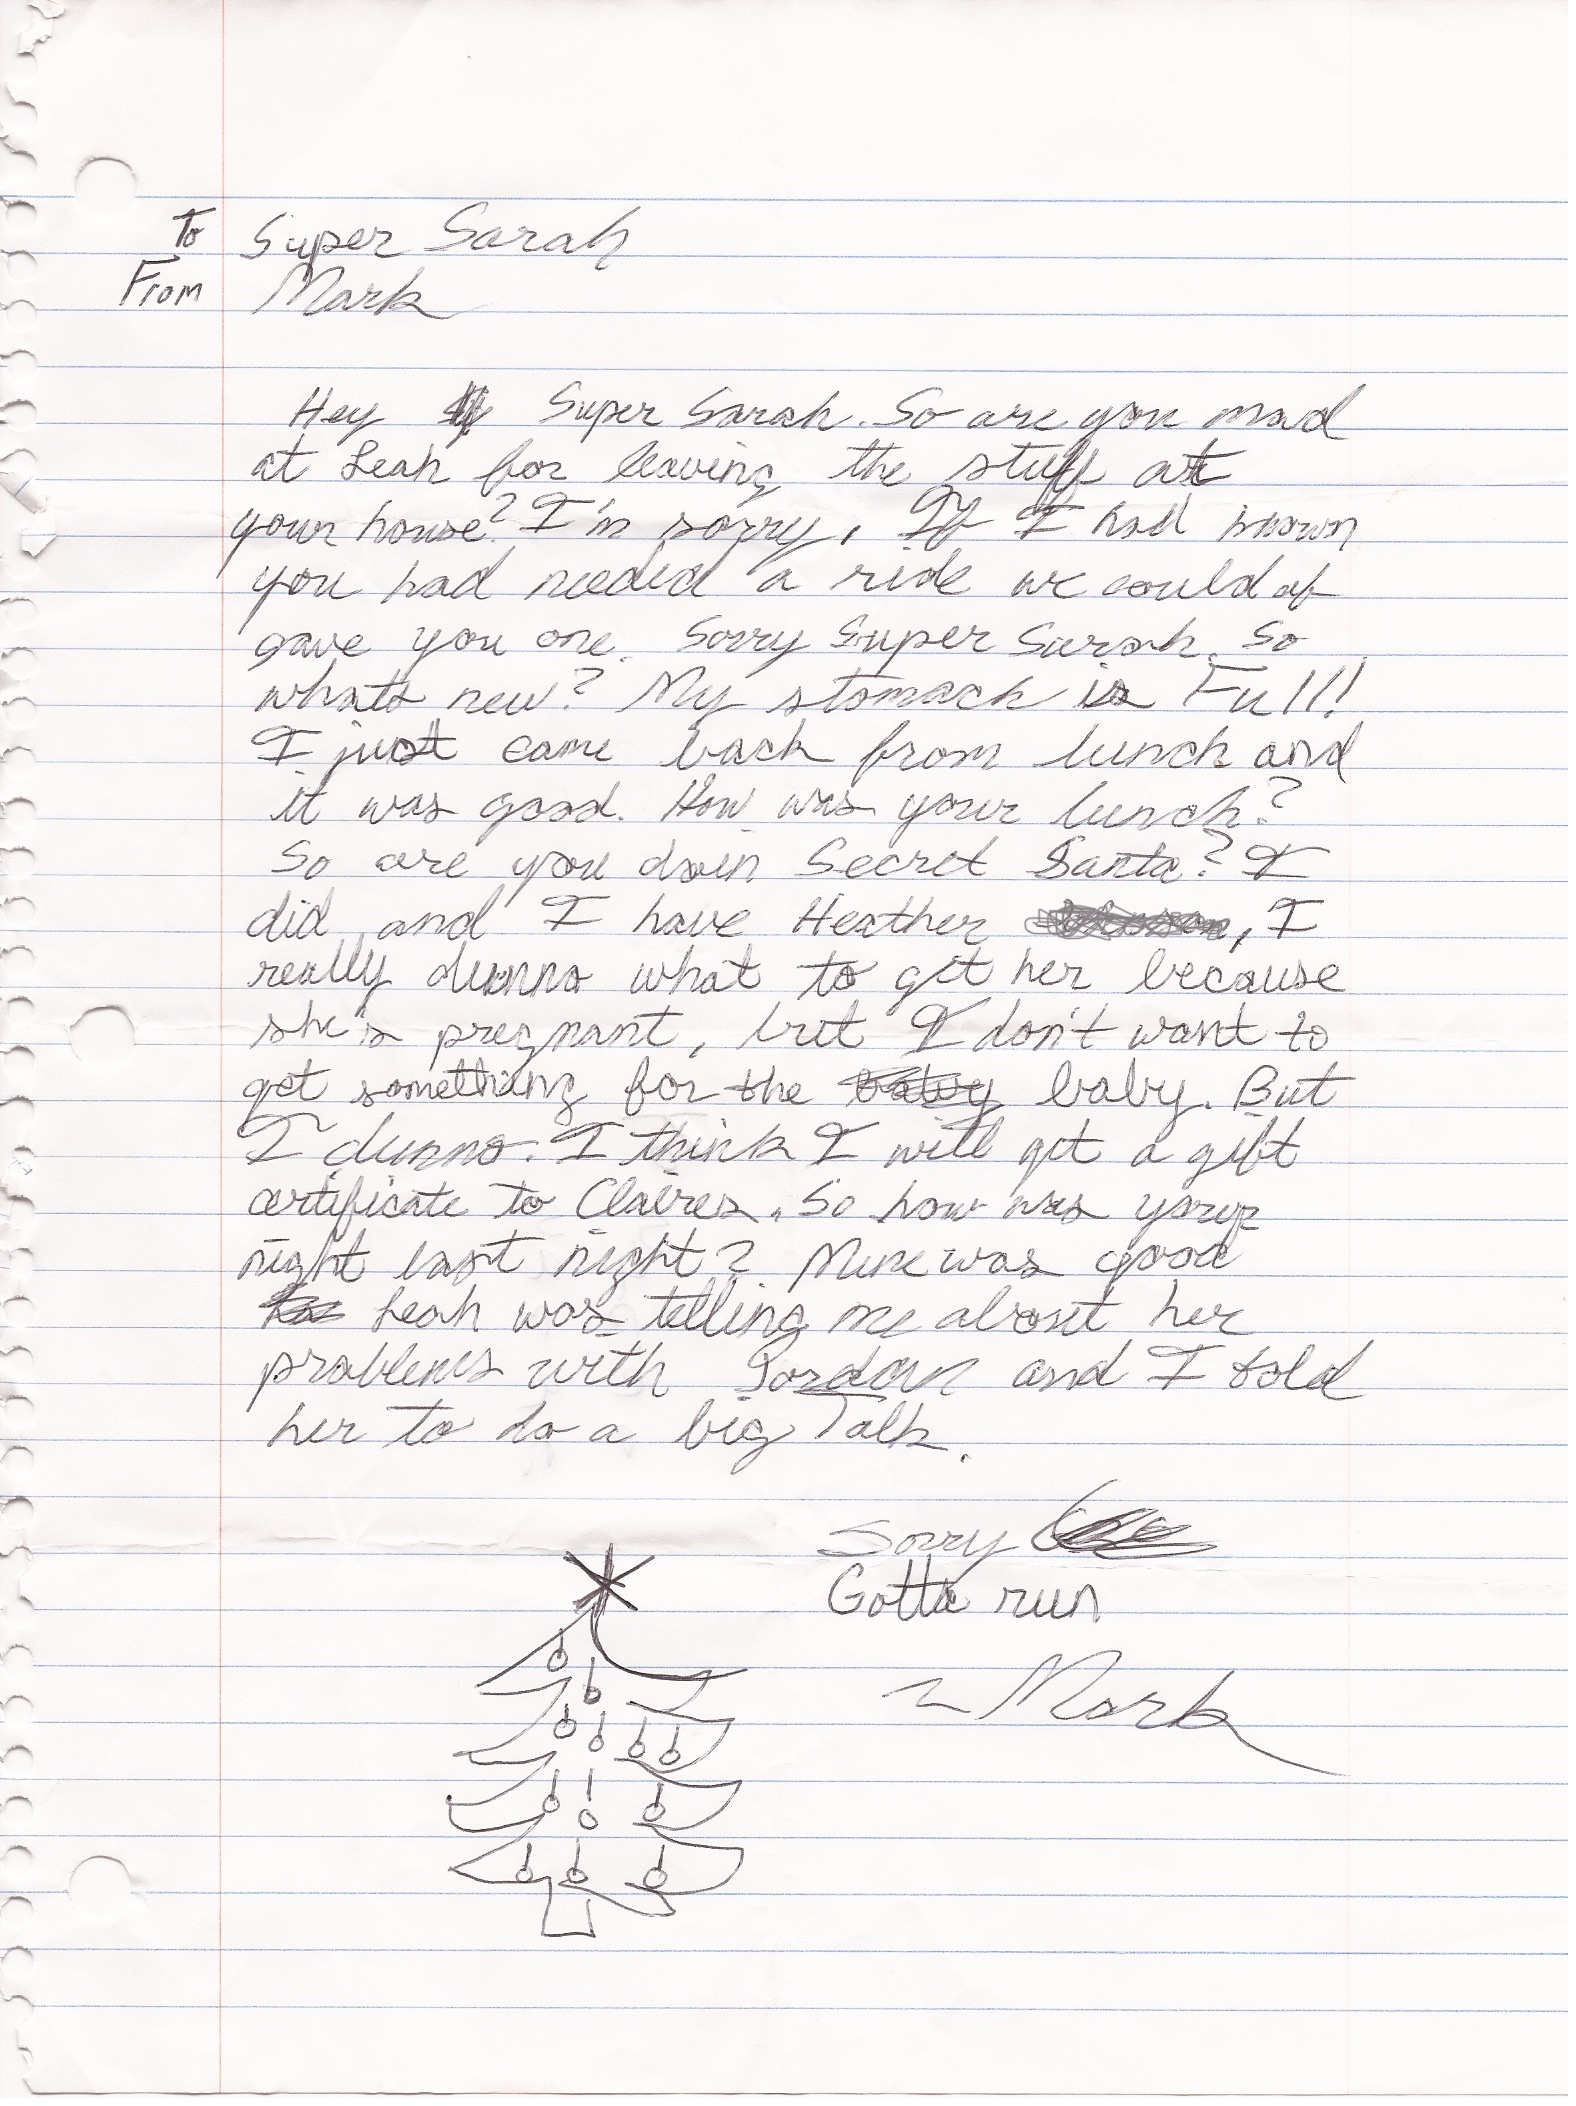 To Super Sarah
From Mark
Hey Super Sarah. So are you mad
at Leah for leaving the stuff at
your house? I'm sorry, If I had known
you had needed a ride we could of
gave you one. Sorry Super Sarah. So
whats new? My stomack is Full!
I just came back from lunch and
it was good. How was your lunch?
So are you doin Secret Santa? I
did and I have Heather, I
really dunno what to get her because
she's pregnant, but I don't want to
get something for the baby baby. But
I dunno. I think I will get a gift
certificate to Claires. So how was your
night last night? Mine was good
Leah was telling me about her
problems with Jordan and I told
her to do a big Talk.
Sorry
Gotta run
~ Mark